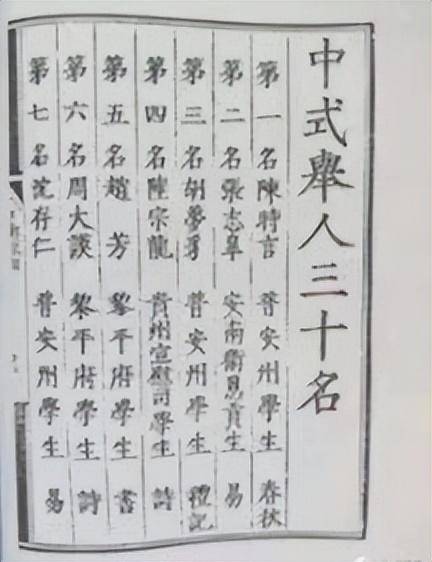 中式舉人三十名
第一名陳時言 普安州學生 春秋
第二名張志皐 安南衛恩貢生 易
第三名胡夢豸 普安州學生 禮記
第四名陸宗龍 貴州宣慰司學生 詩
第五名趙芳 黎平府學生 書
第六名周大謨 黎平府學生 詩
第七名沈存仁 普安州學生 易